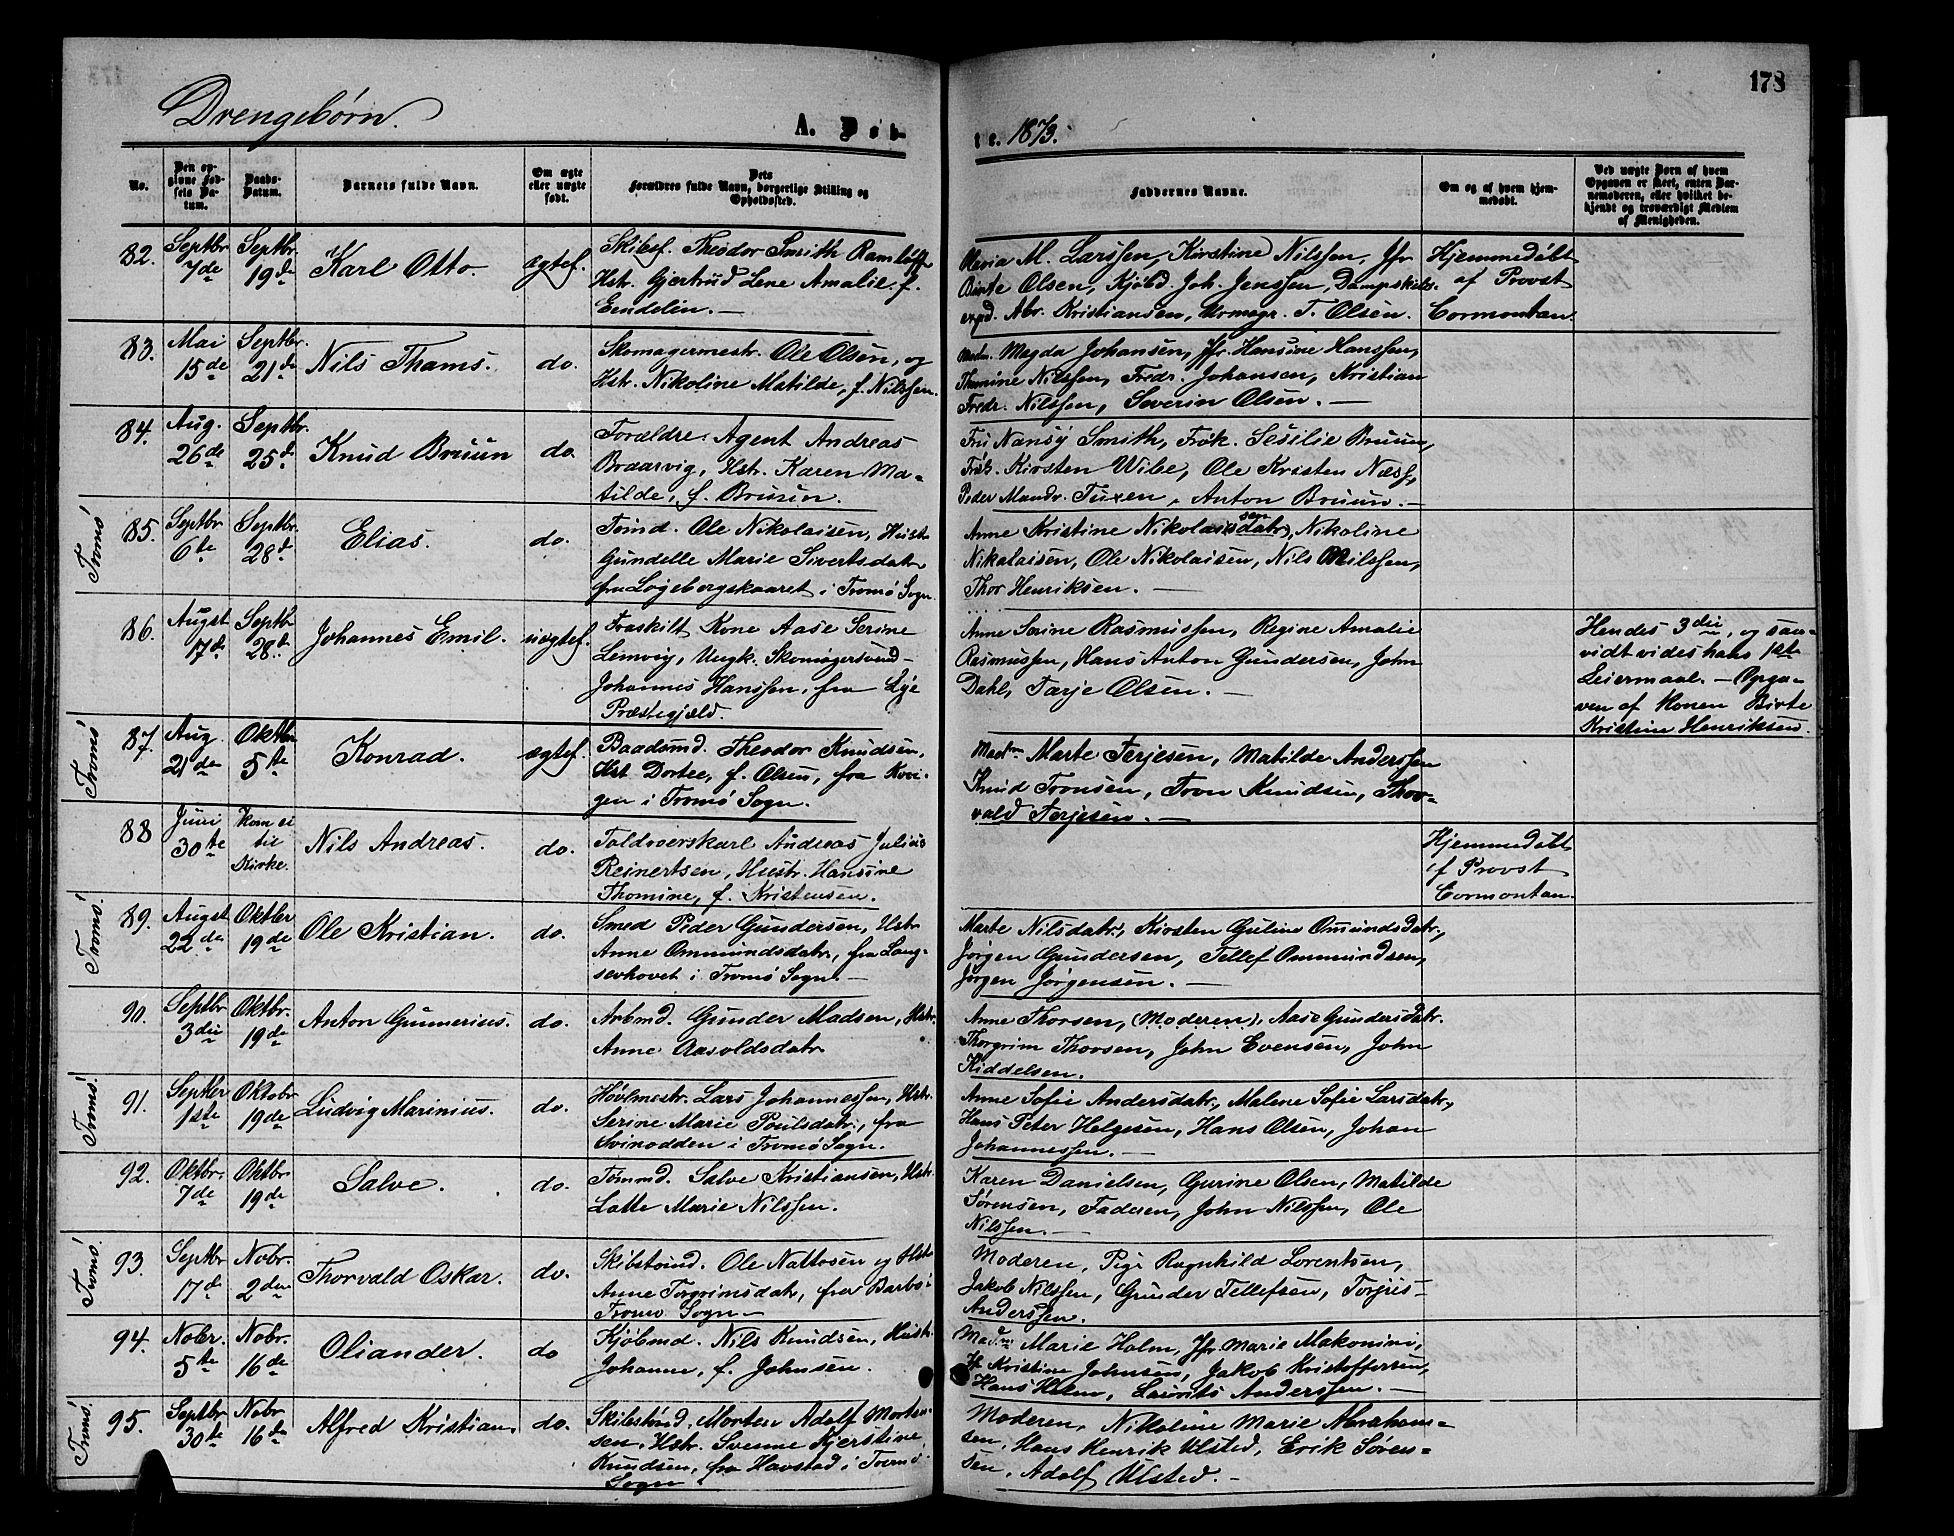 Drengebørn.
A. Døb-
te. 1873.
178
No.
Den op-
givne Fød-
sels Da-
tum.
Daabs-
Datum.
Barnets fulde Navn.
Om ægte
eller uægte
født.
Dets
Forældres fulde Navn, borgerlige Stilling og
Opholdssted.
Faddernes Navne.
Om og af hvem hjem-
medøbt.
Ved uægte Børn af hvem
Opgaven er skeet, enten Bar-
nemoderen, eller hvilket be-
kjendt og troværdigt Medlem
af Menigheden.
82.
Septbr
7de
Septbr.
19de
Karl Otto.
ægtef.
Skibsf. Theodor Smith Ramløff
Hstr. Gjertrud Lene Amalie f.
Eendelin. —
Maria M. Larssen, Kirstine Nilssen, Jfr
Birte Olsen, Kjøbd. Joh. Jenssen, Dampskibs-
exp. Abr. Kristiansen, Urmagr. T. Olsen.
Hjemmedøbt
af Provst
Cormontan.
83.
Mai
15de
Septbr.
21de
Nils Thams.
do.
Skomagermestr. Ole Olsen, og
Hstr. Nikoline Matilde, f. Nilssen.
Madm. Magda Johansen, Jfr. Hansine Hanssen,
Thomine Nilssen, Fredr. Johansen, Kristian
Fredr. Nilssen, Severin Olsen. —
84.
Aug.
26de
Septbr.
25de
Knud Bruun
do.
Forældre: Agent Andreas
Braarvig, Hstr. Karen Ma-
tilde, f. Bruun.
Fru Nansy Smith, Frøk. Sesilie Bruun,
Frøk. Kirsten Wibe, Ole Kristen Næss,
Peder Mandr. Tuxen, Anton Bruun. —
Tromø
85.
Septbr
6te
Septbr.
28de
Elias.
do.
Tømd. Ole Nikolaisen, Hust.
Gundelle Marie Sivertsdatr
fra Løgebergskaaret i Tromø Sogn.
Anne Kristine Nikolaisdatr, Nikoline
sen
Nikolaisen, Ole Nikolaisen, Nils Nilssen,
Thor Henriksen. —
86.
Augst
17de
Septbr
28de
Johannes Emil.
uægtef.
Fraskilt Kone Aase Serine
Lemvig, Ungk. Skomagersvend
Johannes Hanssen, fra Lye
Præstegjæld.
Anne Serine Rasmussen, Regine Amalie
Rasmussen, Hans Anton Gundersen, John
Dahl, Tarje Olsen. —
Hendes 3die, og saa-
vidt vides hans 1ste
Leiermaal. — Opga-
ven af Konen Birte
Kristine Henriksen.
Tromø
87.
Aug.
21de
Oktbr
5te
Konrad.
ægtef.
Baadsmd. Theodor Knudsen,
Hst. Dortee, f. Olsen, fra Kvi-
gen i Tromø Sogn.
Madm Marte Terjesen, Matilde Anderssen
Knud Tronsen, Tron Knudsen, Thor-
vald Terjesen. —
88
Juni
30te
Kom ei
til
Kirke.
Nils Andreas.
do.
Toldoverskarl Andreas Julius
Reinertsen, Hustr. Hansine
Thomine, f. Kristensen.
Hjemmedøbt
af Provst
Cormontan.
Tromø.
89.
Augst
22de
Oktbr
19de
Ole Kristian.
do.
Smed Peder Gundersen, Hstr
Anne Ommundsdatr, fra Lang-
sevhovet i Tromø Sogn. —
Marte Nilsdatr., Kirsten Guline Omundsdatr.,
Jørgen Gundersen, Tellef Ommundsen,
Jørgen Jørgensen. —
90.
Septbr
3die
Oktbr.
19de
Anton Gunnerius.
do.
Arbmd. Gunder Madsen, Hstr.
Anne Aasoldsdatr
Anne Thorsen, (Moderen), Aase Gundersdatr.
Thorgrim Thorsen, John Evensen, John
Kiddelsen.
Tromø!
91.
Septbr
1ste
Oktobr
19de
Ludvig Marinius.
do.
Høvlmestr. Lars Johannessen, Hstr.
Serine Marie Poulsdatr., fra
Svinodden i Tromø Sogn.
Anne Sofie Andersdatr., Malene Sofie Larsdatr.,
Hans Peter Helgesen, Hans Olsen, Johan
Johannessen. —
92.
Oktbr.
7de
Oktbr.
19de
Salve.
do.
Tømmd. Salve Kristiansen, Hstr.
Latte Marie Nilssen.
Karen Danielsen, Gurine Olsen, Matilde
Sørensen, Faderen, John Nilssen, Ole
Nilssen. —
Tromø!
93.
Septbr
17de
Nobr.
2den
Thorvald Oskar.
do.
Skibstømd. Ole Nattosen og Hstr
Anne Torgrimsdatr, fra Barbo i
Tromø Sogn —
Moderen, Pige Ragnhild Lorentsen,
Jakob Nilssen, Gunder Tellefsen, Torjus
Anderssen.
94.
Nobr.
5te
Nobr.
16de
Oliander.
do
Kjøbmd. Nils Knudsen, Hustr.
Johanne, f. Johnsen.
Madm Marie Holm, Jfr. Marie Makonini,
Jf. Kristine Johnsen, Jakob Kristoffersen,
Hans Holm, Laurits Anderssen. —
Tromø!
95.
Septbr
30te
Nobr
16de
Alfred Kristian.
do.
Skibstømd. Morten Adolf Morten-
sen, Hstr. Svenne Kjerstine
Knudsen, fra Havstad i Tromø
Sogn
Moderen, Nikoline Marie Abraham-
sen, Hans Henrik Ulsted, Erik Søren-
sen, Adolf Ulsted. —